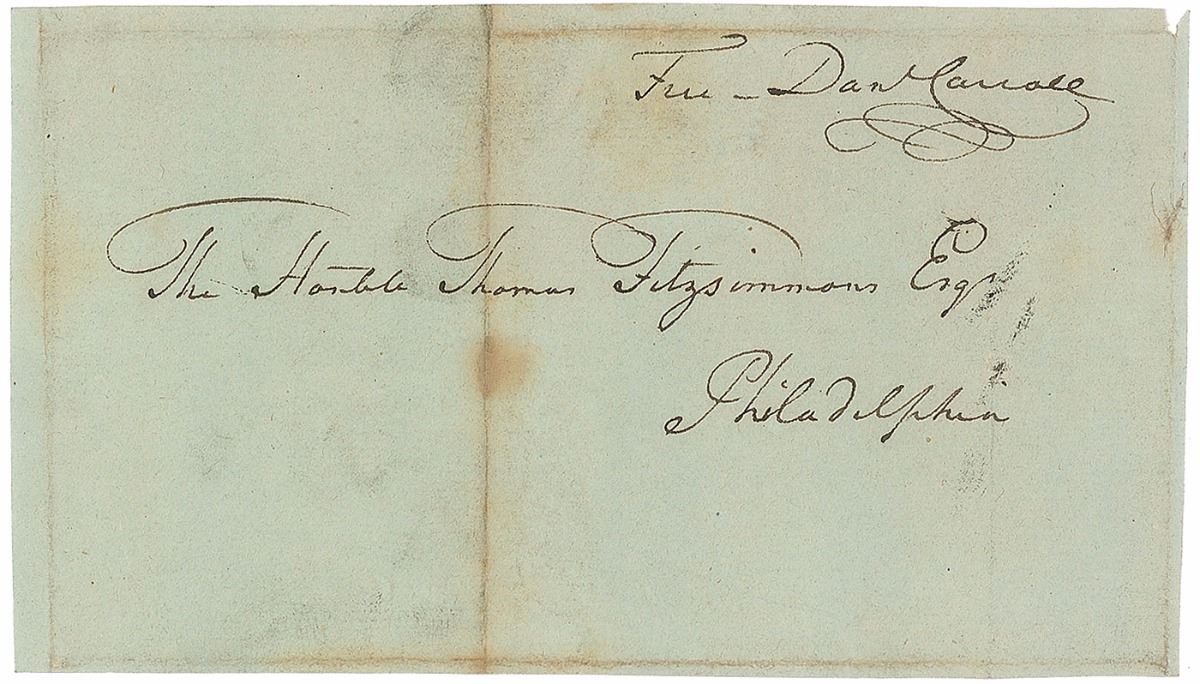 Free – Danl Carroll
The Honble Thomas Fitzsimmons Esqr
Philadelphia